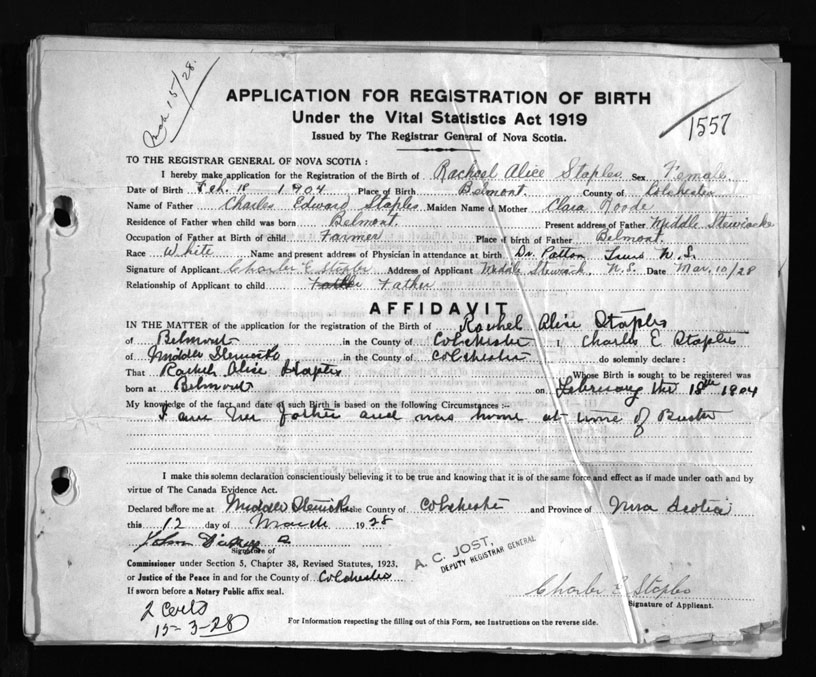 Mch 15/28.
APPLICATION FOR REGISTRATION OF BIRTH
Under the Vital Statistics Act 1919
1557
Issued by The Registrar General of Nova Scotia.
TO THE REGISTRAR GENERAL OF NOVA SCOTIA :
I hereby make application for the Registration of the Birth of Rachael Alice Staples Sex Female
Date of Birth Feb. 18 1904 Place of Birth Belmont. County of Colchester
Name of Father Charles Edward Staples Maiden Name of Mother Clara
Residence of Father when child was born Belmont. Present address of Father Middle Stewiacke
Occupation of Father at Birth of child Farmer Place of birth of Father Belmont.
Race White Name and present address of Physician in attendance at birth Dr. Patton N.S.
Signature of Applicant Charles E Staples Address of Applicant Middle Stewiack, N.S. Date Mar. 10/28
Relationship of Applicant to child Father
AFFIDAVIT
IN THE MATTER of the application for the registration of the Birth of Rachel Alice Staples
of Belmont in the County of Colchester I, Charles E. Staples
of Middle in the County of Colchester do solemnly declare :
That Rachel Alice Staples Whose Birth is sought to be registered was
born at Belmont on February the 18th 1904
My knowledge of the fact and date of such Birth is based on the following Circumstances :-
I am her father and was home at time of
I make this solemn declaration conscientiously believing it to be true and knowing that it is of the same force and effect as if made under oath and by
virtue of The Canada Evidence Act.
Declared before me at Middle the County of Colchester and Province of Nova Scotia
this 12 day of March 1928
Signature of
A. C. JOST,
DEPUTY REGISTRAR GENERAL
Commissioner under Section 5, Chapter 38, Revised Statutes, 1923,
or Justice of the Peace in and for the County of Colchester
Charles E Staples
If sworn before a Notary Public affix seal.
Signature of Applicant.
2 Certs
15-3-28
For Information respecting the filling out of this Form, see Instructions on the reverse side.